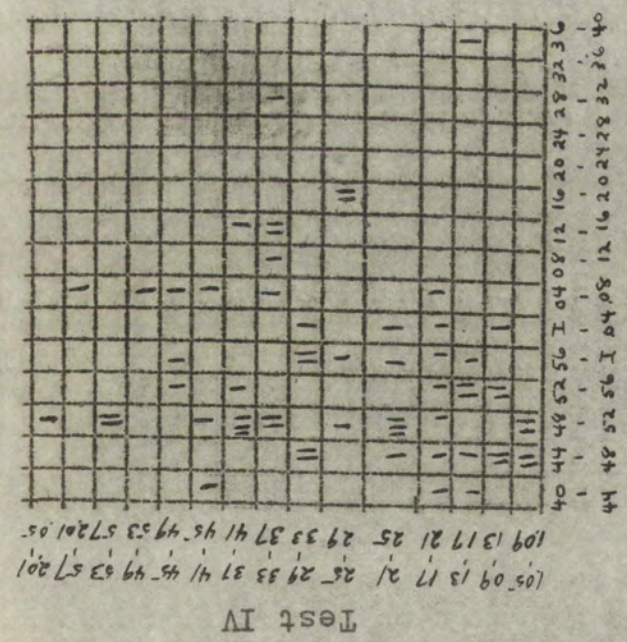 Test IV
1.05 09 13 17 21 25 29 33 37 41 45 49 53 57 2.01
1.09 13 17 21 25 29 33 37 41 45 49 53 57 2.01 2.05
40 44 48 52 56 I 04 08 12 16 20 24 28 32 36
- - - - - - - - - - - - - - -
44 48 52 56 I 04 08 12 16 20 24 28 32 36 40